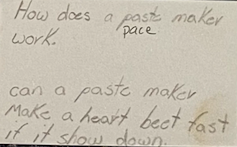 How does a paste maker
pace
work.
can a paste maker
Make a heart beet fast
if it show down.